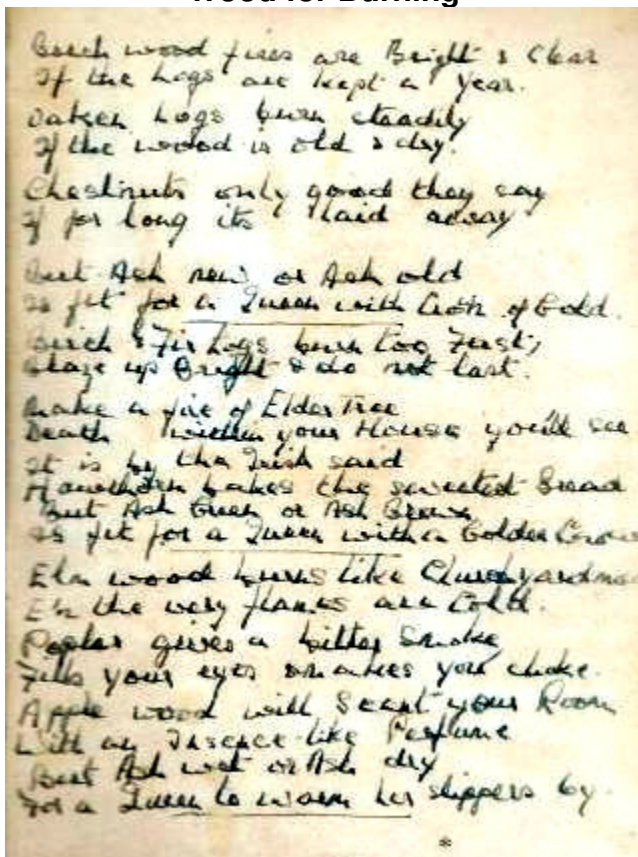 Wood for Burning
Beech wood fires are Bright & Clear
If the Logs are kept a Year.
Oaken Logs burn steadily
If the wood is old & dry.
Chestnuts only good they say
If for long its laid away
But Ash new or Ash old
Is fit for a Queen with Crown of Gold.
Birch & Fir Logs burn too Fast,
Blaze up Bright & do not last.
Make a fire of Elder Tree
Death within your House you'll see
It is by the Irish said
Hawthorn bakes the sweetest Bread
But Ash Green or Ash Brown
Is fit for a Queen with a Golden Crown
Elm wood burns like Churchyard
E'n the very flames are Cold.
Poplar gives a bitter Smoke
Fills your eyes & makes you choke.
Apple wood will Scent your Room
With an Insence-like Perfume
But Ash wet or Ash dry
For a Queen to warm her slippers by.
*